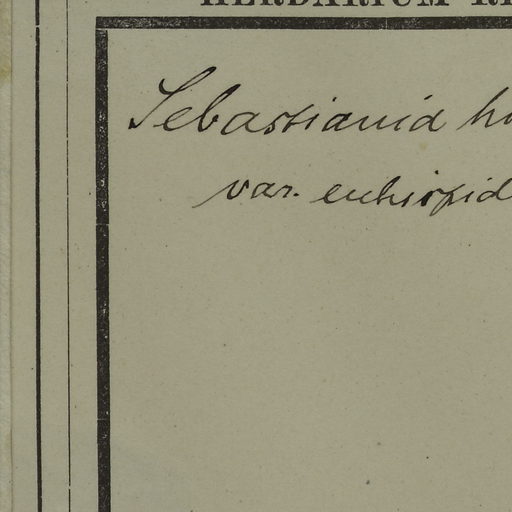 HERBARIUM RE
Sebastiania hi
var. euhispid